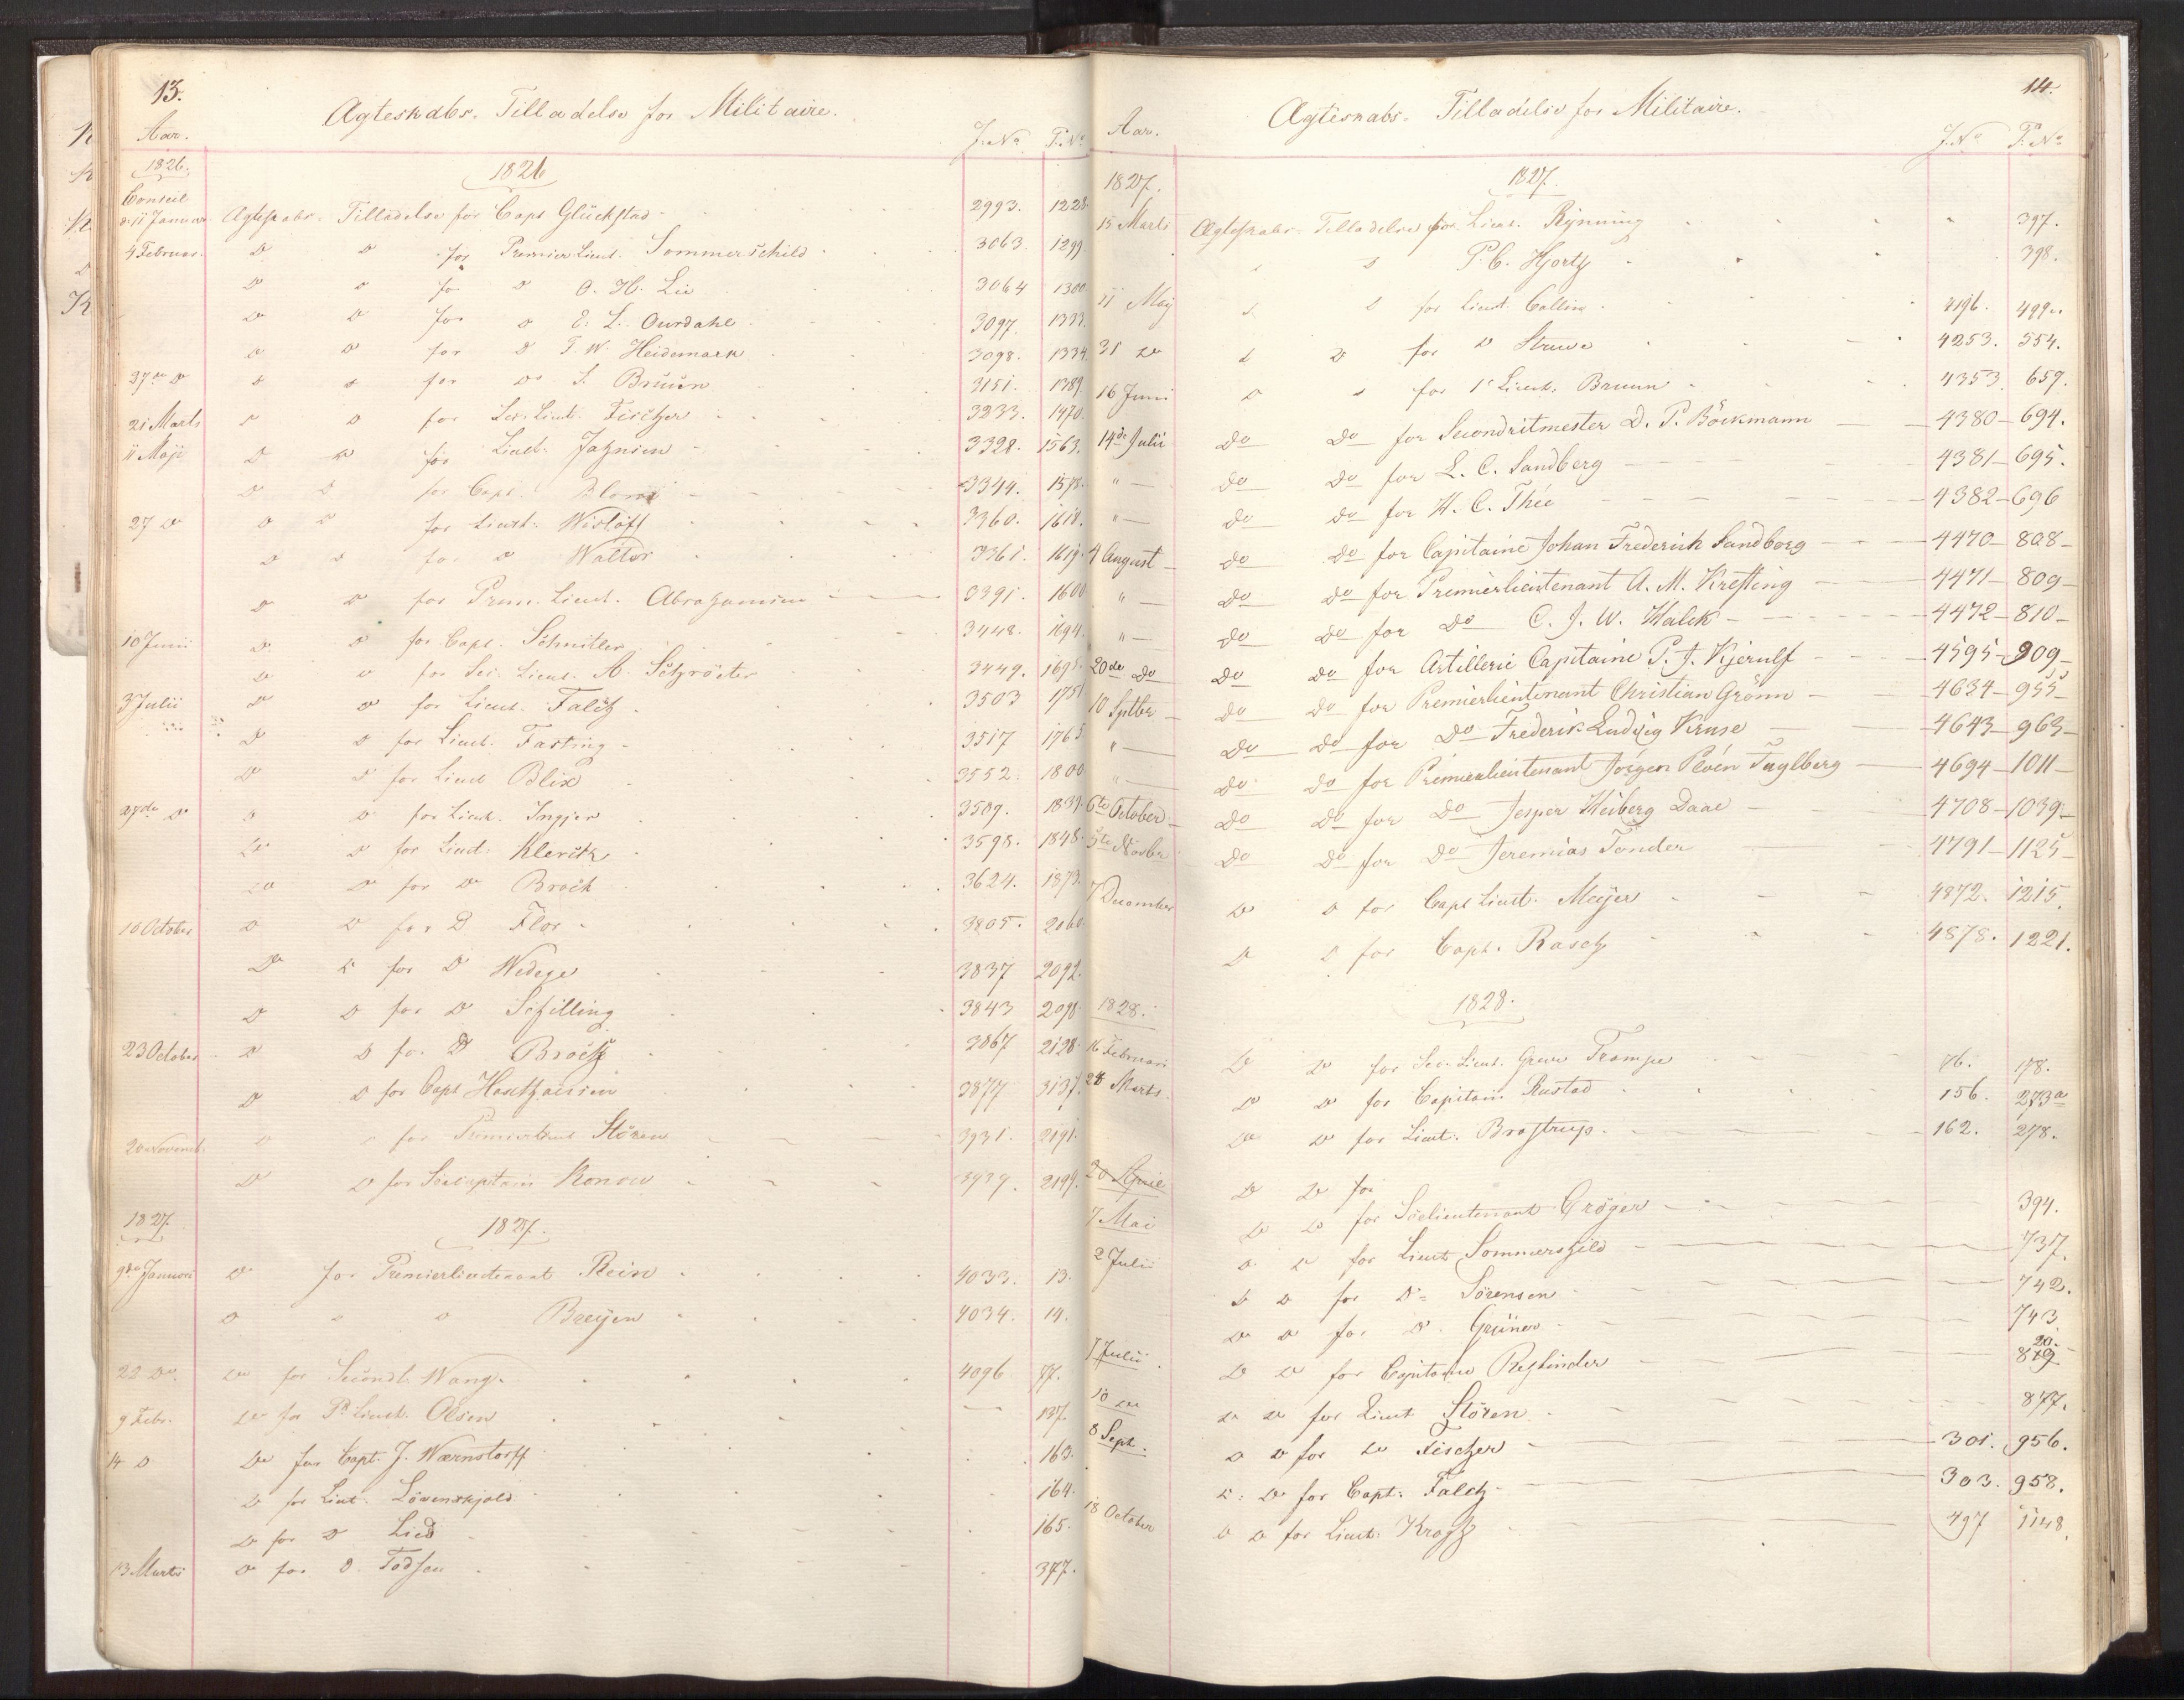 13.
Ægteskabs- Tilladelse for Militaire.
Aar. J. No P. No
1826. 1826
Conseil
d. 11 Januar Ægteskabs- Tilladelse for Capt Glückstad 2993. 1228
4 Februar. Do Do for Premier Lieut. Sommerschild 3063. 1299
Do Do for Do O. H. Lie 3064 1300
Do Do for Do E. L. Ourdahl 3097. 1333.
Do Do for Do T. W. Heidemark 3098. 1334
Do Do for Do S. Bruun 3151. 1389
21 Marts Do Do for Sec. Lieut. Fischer 3233. 1470.
11 Maji Do Do for Lieut. Jahnsen 3328. 1563.
Do Do for Capt 3344. 1578.
27 Do Do Do for Lieut. Wisløff 3360. 1618.
Do Do for Do Walter 3361. 1619.
Do Do for Prem. Lieut. Abrahamsen 3391. 1600
10 Junii Do Do for Capt. Schnitler 3448. 1694.
Do Do for Sec. Lieut. A. Schrøeter 3449. 1695.
3 Julii Do Do for Lieut. Falch 3503 1751
Do Do for Lieut. Fasting 3517 1765
Do Do for Lieut Blix 3552. 1800
27de Do Do Do for Lieut. Ingier 3507. 1839.
Do Do for Lieut. Klerck 3598. 1848.
Do Do for Do Brock 3624. 1873.
10 October Do Do for Do Flor 3805. 2060
Do Do for Do Wedege 3837 2092.
Do Do for Do Schilling 3843 2098.
23 October Do Do for Do Broch 3867 2128.
Do Do for Capt Hauthausen 3877 3137.
20 Novemb. Do Do for Premierlieut Støren 3931. 2191.
Do Do for Søecapitain Konow 3939. 2199.
1827. 1827.
9de Januari Do for Premierlieutenant Rein 4033. 13.
Do Do Do Breyen 4034. 14.
22 Do. Do for Secondl. Wang. 4096 77.
9 Febr. Do for Pr Lieut. Olsen 137.
14 Do Do for Capt. J. Wærnstorff 163.
Do for Lieut. Lövenskjold 164.
Do for Do Lied 165.
13 Marts Do for Do Todsen 347.
14.
Ægteskabs- Tilladelse for Militaire.
Aar. J. No P. No
1827. 1827.
15 Marts Ægteskabs Tilladelse for Lieut. Rynning 397.
P. C. Hjorth 398.
11 Maij Do Do for Lieut. Collin 4196. 499.
31 Do Do Do for Do Struve 4253. 554.
16 Juni Do Do for Pr Lieut. Bruun 4353. 659.
14de Julii Do Do for Secondritmester D. P. Böckmann 4380 — 694.
" Do Do for L. C. Sandberg 4381 — 695.
" Do Do for H. C. Thee 4382 — 696
4 August Do Do for Capitaine Johan Frederich Sandborg 4470 — 808
" Do Do for Premierlieutenant A. M. Krefting 4471 — 809
" Do Do for Do C. J. W. Halck 4472 — 810
20de Do Do Do for Artillerie Capitaine P. J. Kjerulf 4595 — 909
10 Septbr Do Do for Premierlieutenant Christian Grønn 4634 — 955
" Do Do for Do Frederik Ludvig Kruse 4643 — 963
" Do Do for Premierlieutenant Jørgen Ploén Fuglberg 4694 — 1011
6te October Do Do for Do Jesper Heiberg Daae 4708 — 1039
5te Novbr Do Do for Do Jeremias Tønder 4791 — 1125
7 December Do Do for Capt Lieut. Meijer 4872. 1215.
Do Do for Capt. Rasch 4878. 1221.
1828. 1828.
16 Februari Do Do for Sec. Lieut. Greve Trampe 76. 178.
28 Marts. Do Do for Capitain Rustad 156. 273a
Do Do for Lieut. Brostrup 162. 278.
20 April Do Do for
7 Mai Do Do for Søelieutenant Crøger 394.
2 Julii Do Do for Lieut Sommerschild 737.
Do Do for Do Sörensen 742.
Do Do for Do. Grüner 743.
Julii Do Do for Capitaine Rehbinder 819 20.
10 Do Do Do for Lieut Stören 877.
8 Sept. Do Do for Do Fischer 301. 956.
Do Do for Capt. Falch 303. 958.
18 October Do Do for Lieut. Krogh 497 1148.